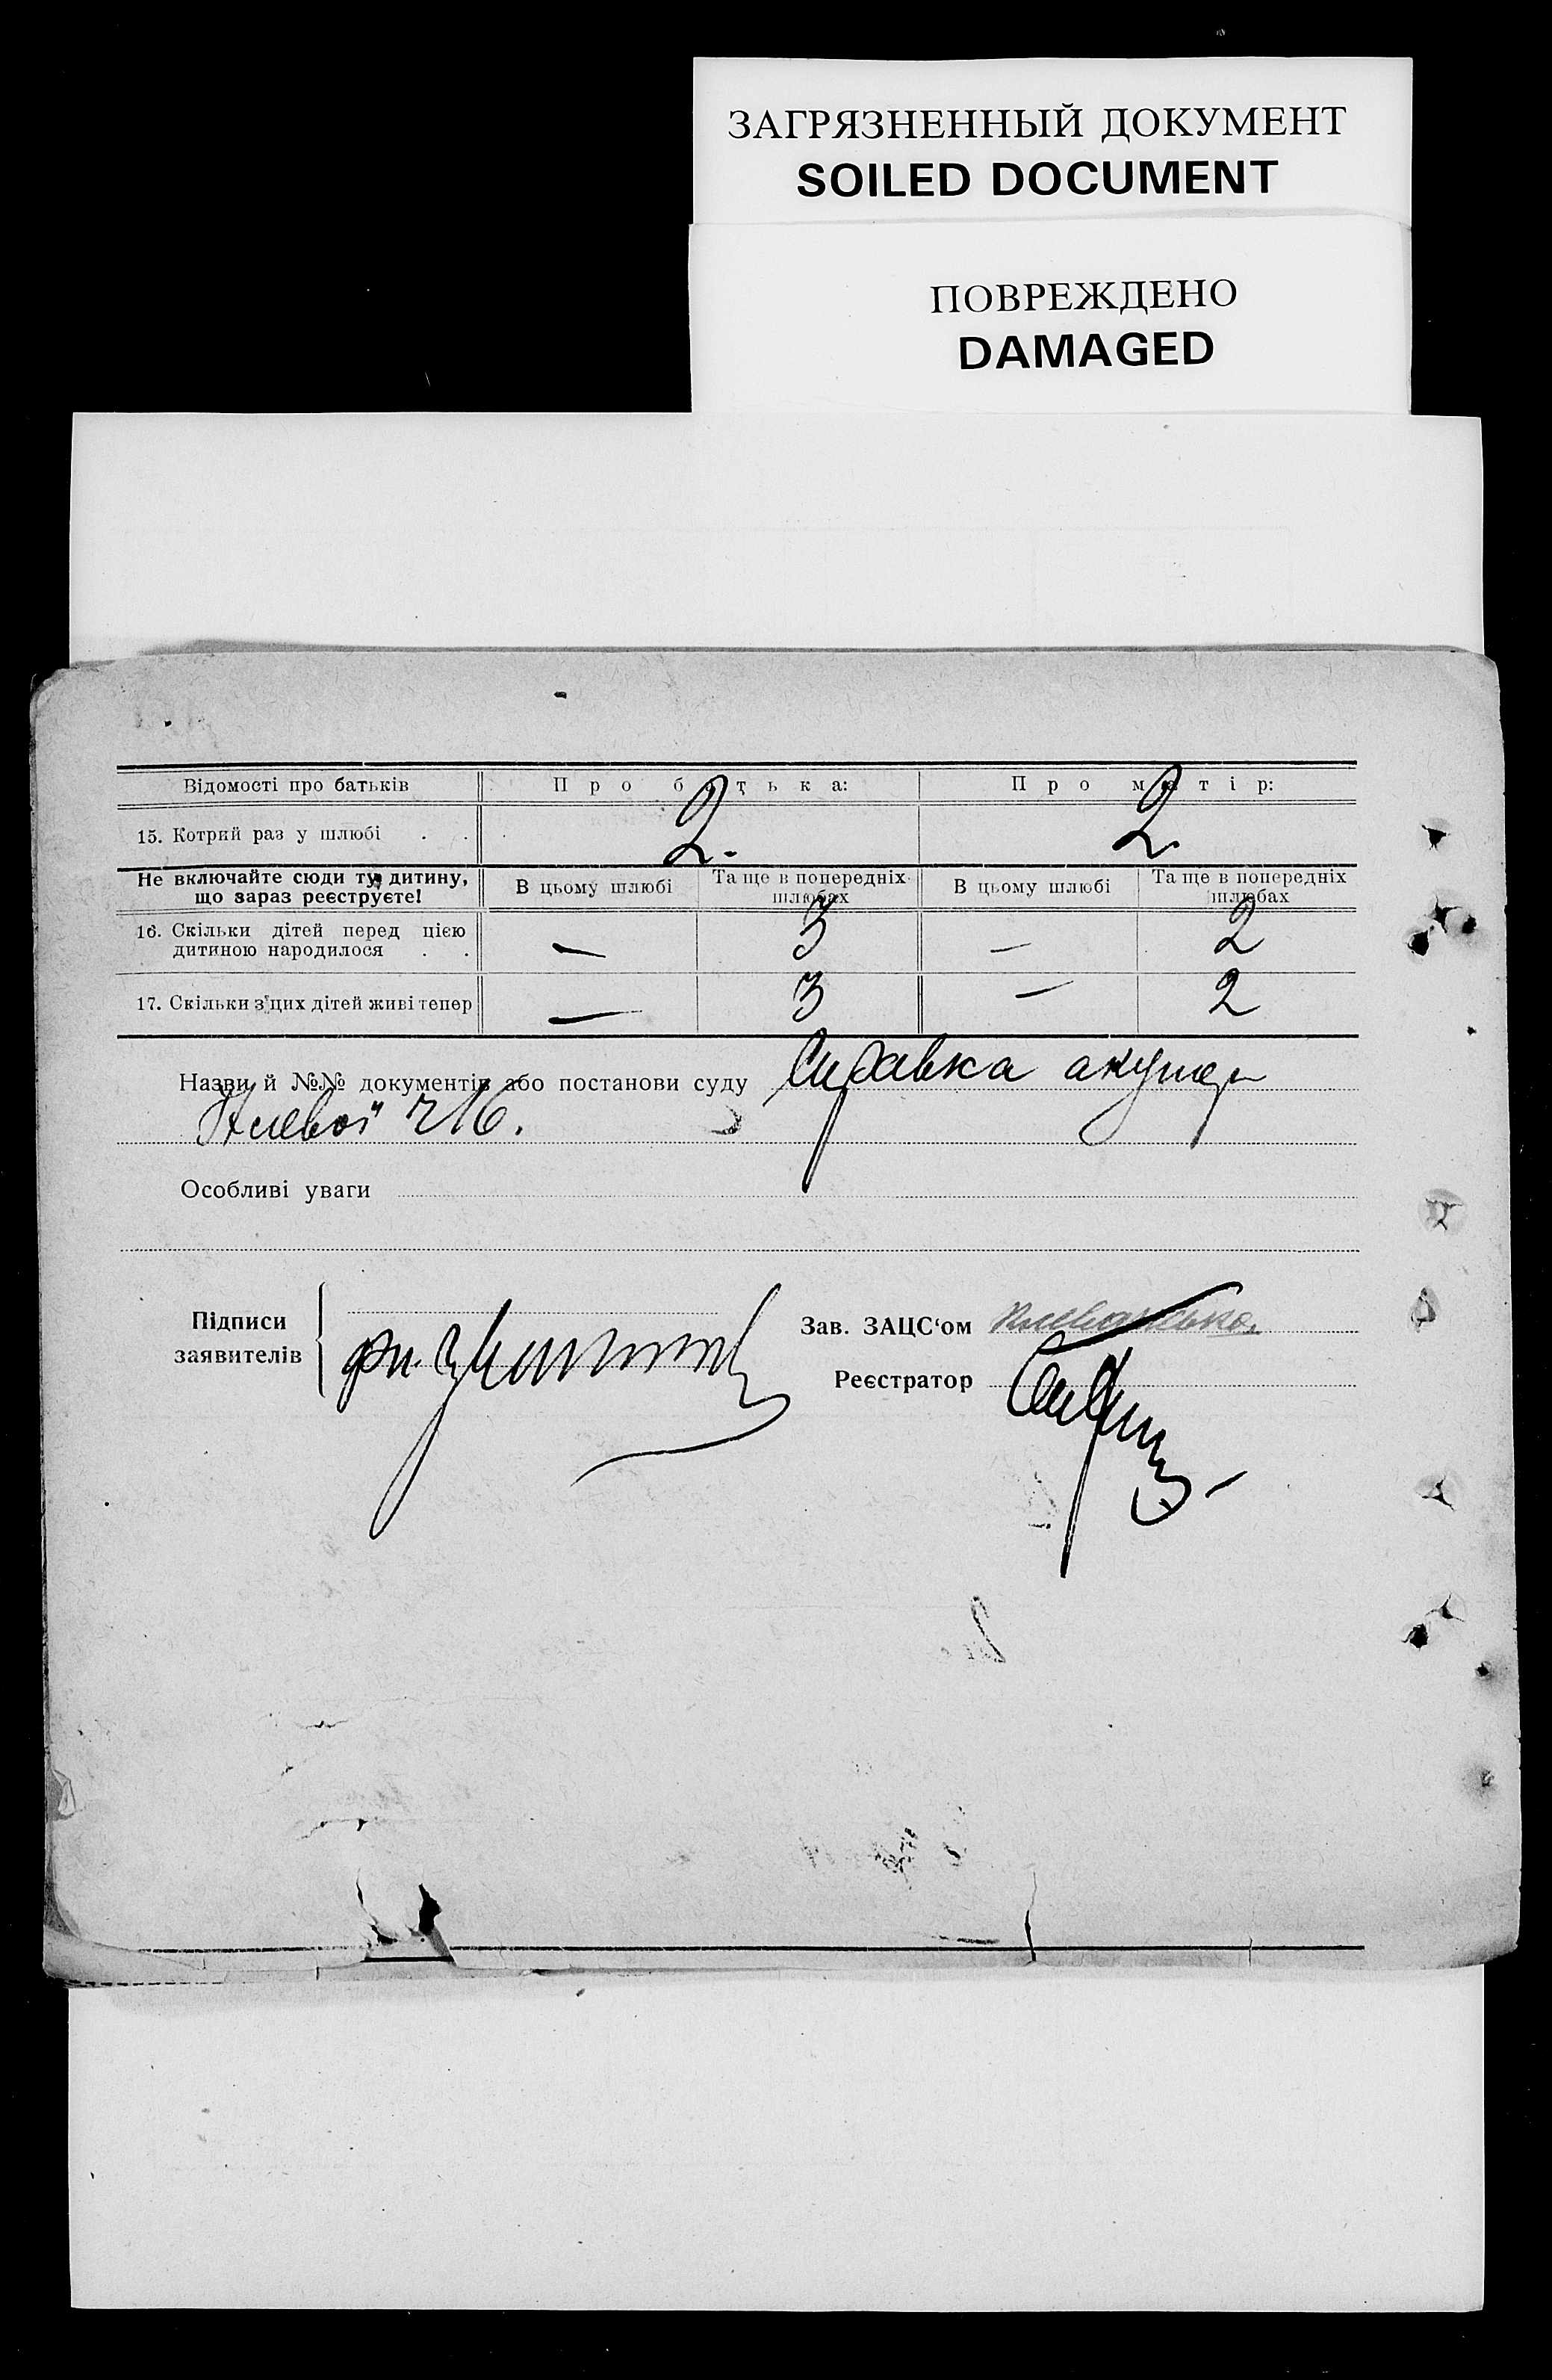 ЗАГРЯЗНЕННЫЙ ДОКУМЕНТ
SOILED DOCUMENT
ПОВРЕЖДЕНО
DAMAGED
Відомості про батьків Про батька: Про матір:
15. Котрий раз у шлюбі . . 2. 2.
Не включайте сюди ту дитину, що зараз реєструєте! В цьому шлюбі Та ще в попередніх шлюбах В цьому шлюбі Та ще в попередніх шлюбах
16. Скільки дітей перед цією дитиною народилося . . — 3 — 2
17. Скільки з цих дітей живі тепер — 3 — 2
Назви й №№ документів або постанови суду Справка акушер
Особливі уваги
Підписи заявителів
Зав. ЗАЦС‘ом
Реєстратор